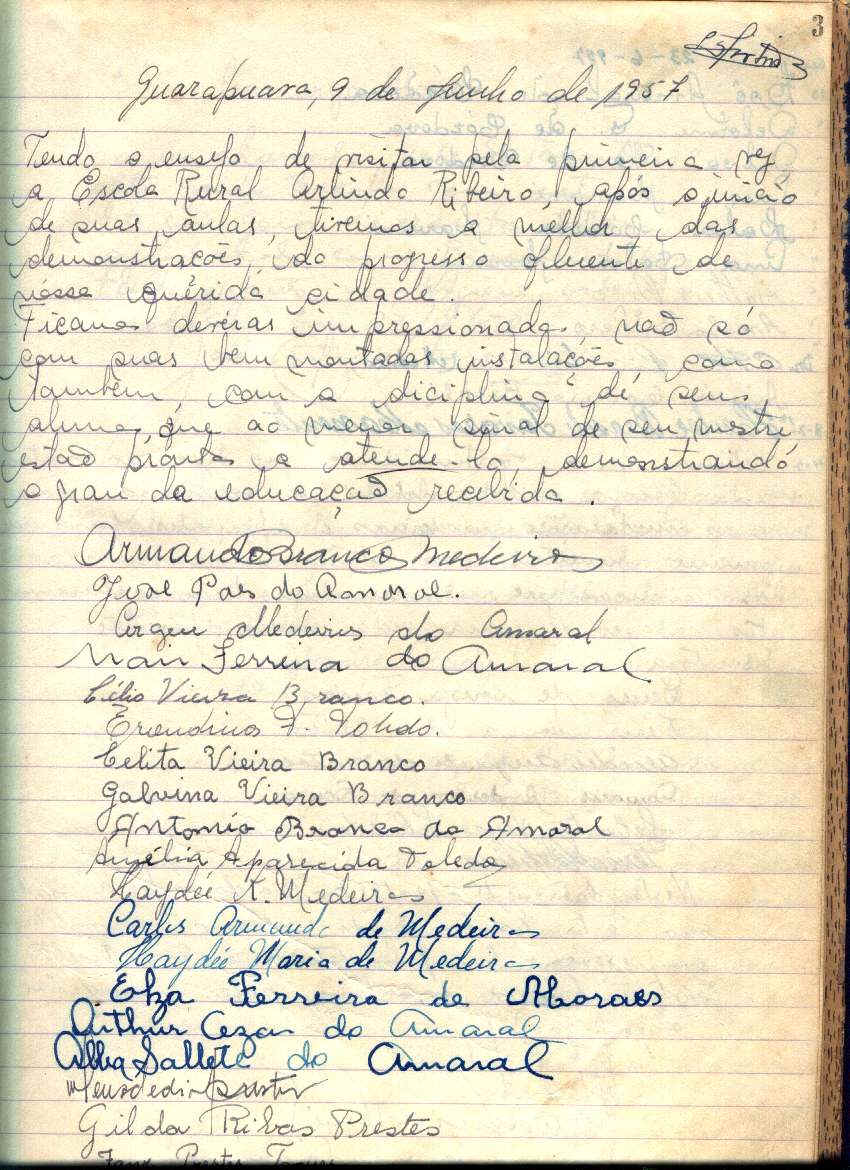 3
Guarapuava, 9 de Junho de 1957
Tendo o ensejo de visitar pela primeira vez
a Escola Rural Arlindo Ribeiro, após o inicio
de suas aulas, tivemos a melhor das
demonstracões, do progresso fluente de
nossa querida cidade.
Ficamos devéras impressionados, não só
com suas bem montadas instalacões, como
também, com a diciplina de seus
alunos, que ao menor sinal de seu mestre
estão prontos a atende-lo, demonstrando
o grau da educação recebida.
Armando Branco Medeiros
José Paes do Amaral.
Medeiros do Amaral
Nair Ferreira do Amaral
Célio Vieira Branco.
Erondina F. Toledo.
Celita Vieira Branco
Galvina Vieira Branco
Antonio Branco do Amaral
Amélia Aparecida Toledo
Haydée A. Medeiros
Carlos Armando de Medeiros
Haydée Maria de Medeiros
Elza Ferreira de Moraes
Arthur Cezar do Amaral
Alba Sallete do Amaral
Gilda Ribas Prestes
Prestes